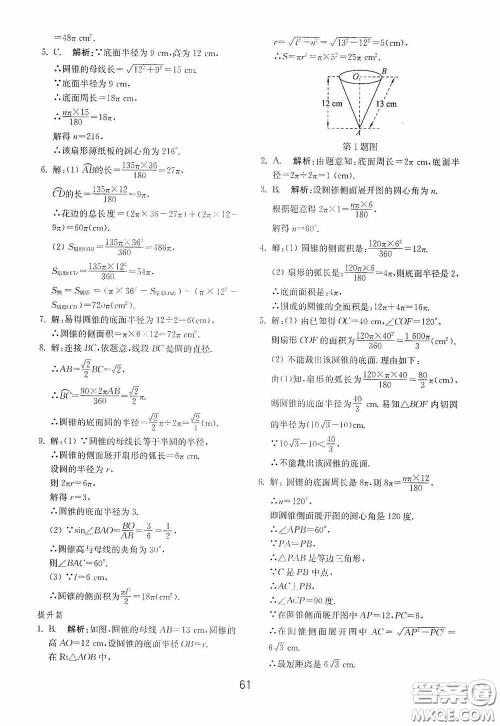 =48π cm².
5. C. 解析:∵底面半径为 9 cm,高为 12 cm,
∴圆锥的母线长=√(12²+9²)=15 cm.
∵底面半径为 9 cm,
∴底面周长=18π cm,
∴nπ×15/180=18π,
解得 n=216,
∴该扇形薄纸板的圆心角为 216°.
6. 解:(1) AB的长=135π×36/180=27π,
CD的长=135π×12/180=9π,
∴花边的总长度=(2π×36−27π)+(2π×12−9π)=60π(cm).
(2) =135π×36²/360=486π,
=135π×12²/360=54π,
=(π×36²− )−(π×12²− )=720π(cm²).
7. 解:易得圆锥的底面半径为 12÷2=6(cm).
∴圆锥的侧面积=π×6×12=72π cm².
8. 解:连接 BC,依题意,线段 BC 是圆的直径.
∴AB=√2/2 BC=√2,
∴BC=90×2πAB/360=√2/2 π,
∴圆锥的底面圆的半径=√2/2 π÷2π=√2/4(m).
9. 解:(1) ∵圆锥的母线长等于半圆的半径,
∴圆锥的侧面展开扇形的弧长=6π cm.
设圆的半径为 r,
则 2πr=6π,
解得 r=3,
∴圆锥的底面半径为 3.
(2) ∵sin∠BAO=BO/AB=3/6=1/2,
∴圆锥高与母线的夹角为 30°,
则∠BAC=60°.
(3) ∵l=6 cm,
∴圆锥的侧面积为πl²/2=18π(cm²).
提升篇
1. B. 解析:如图,圆锥的母线 AB=13 cm,圆锥的
高 AO=12 cm,设圆锥的底面半径 OB=r,
在 Rt△AOB 中,
r=√(l²−h²)=√(13²−12²)=5(cm),
∴S=πr²=π×5²=25π cm².
O
B
12 cm
13 cm
A
第 1 题图
2. A. 解析:由题意知:底面周长=2π cm,底面半
径=2π÷2π=1(cm).
3. B. 解析:设圆锥侧面展开图的圆心角为 n.
根据题意得 2π×1=nπ×6/180
解得 n=60°.
4. 解:(1) 圆锥的侧面积是:120π×6²/360=12π.
(2) 扇形的弧长是:120π×6/180=4π,则底面半径是:2,
∴底面积是:4π,
∴围成的圆锥全面积是:12π+4π=16π.
5. 解:(1) 由已知得 OC=40 cm,∠COF=120°,
则扇形 COF 的面积为120π×40²/360=1 600π/3 cm².
(2) 不能裁出该圆锥的底面. 理由如下:
由(1)知,扇形的弧长是120π×40/180=80/3 π(cm)
则圆锥的底面半径是40/3 cm. 易知△BOF 内切圆
的半径为(10√3−10)cm.
∵10√3−10<40/3,
∴不能裁出该圆锥的底面.
6. 解:圆锥的底面周长是 8π,则 8π=nπ×12/180
∴n=120°,
即圆锥侧面展开图的圆心角是 120 度.
∴∠APB=60°,
∵PA=PB,
∴△PAB 是等边三角形,
∵C 是 PB 中点,
∴AC⊥PB,
∴∠ACP=90 度.
∵在圆锥侧面展开图中 AP=12,PC=6,
∴在圆锥侧面展开图中 AC=√(AP²−PC²)=
6√3 cm.
∴最短距离是 6√3 cm.
61